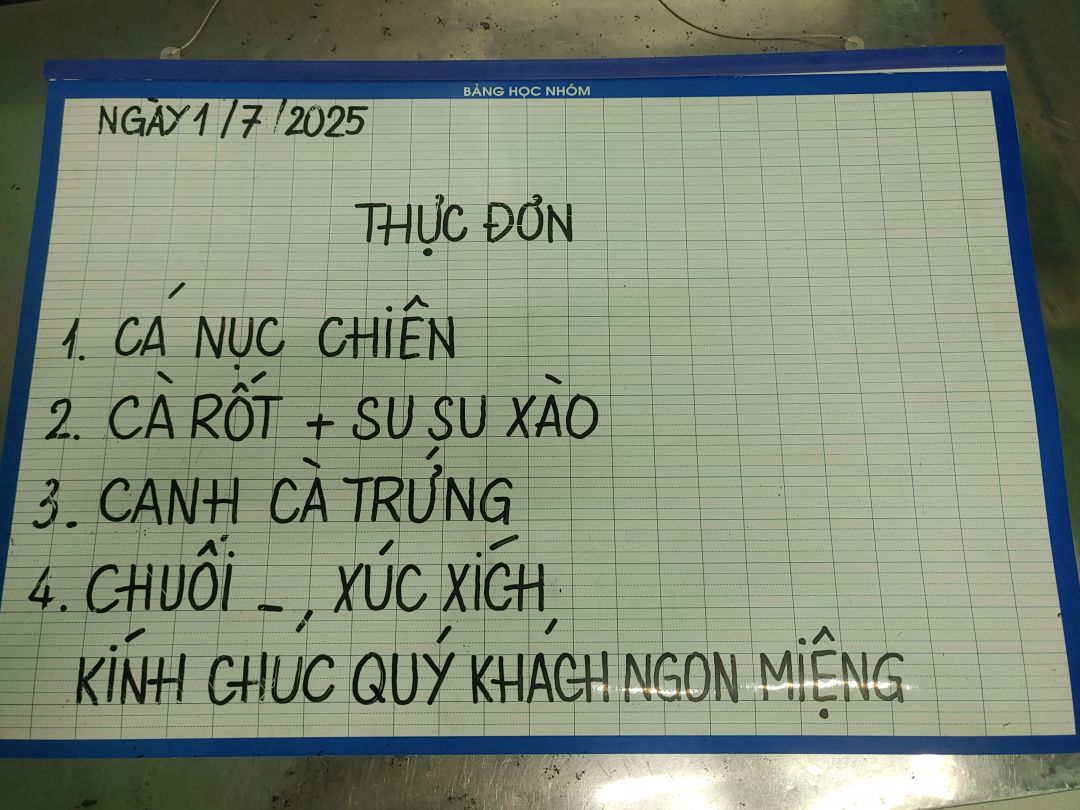 BẢNG HỌC NHÓM
NGÀY 1/7/2025
THỰC ĐƠN
1. CÁ NỤC CHIÊN
2. CÀ RỐT + SU SU XÀO
3. CANH CÀ TRỨNG
4. CHUỐI - XÚC XÍCH
KÍNH CHÚC QUÝ KHÁCH NGON MIỆNG